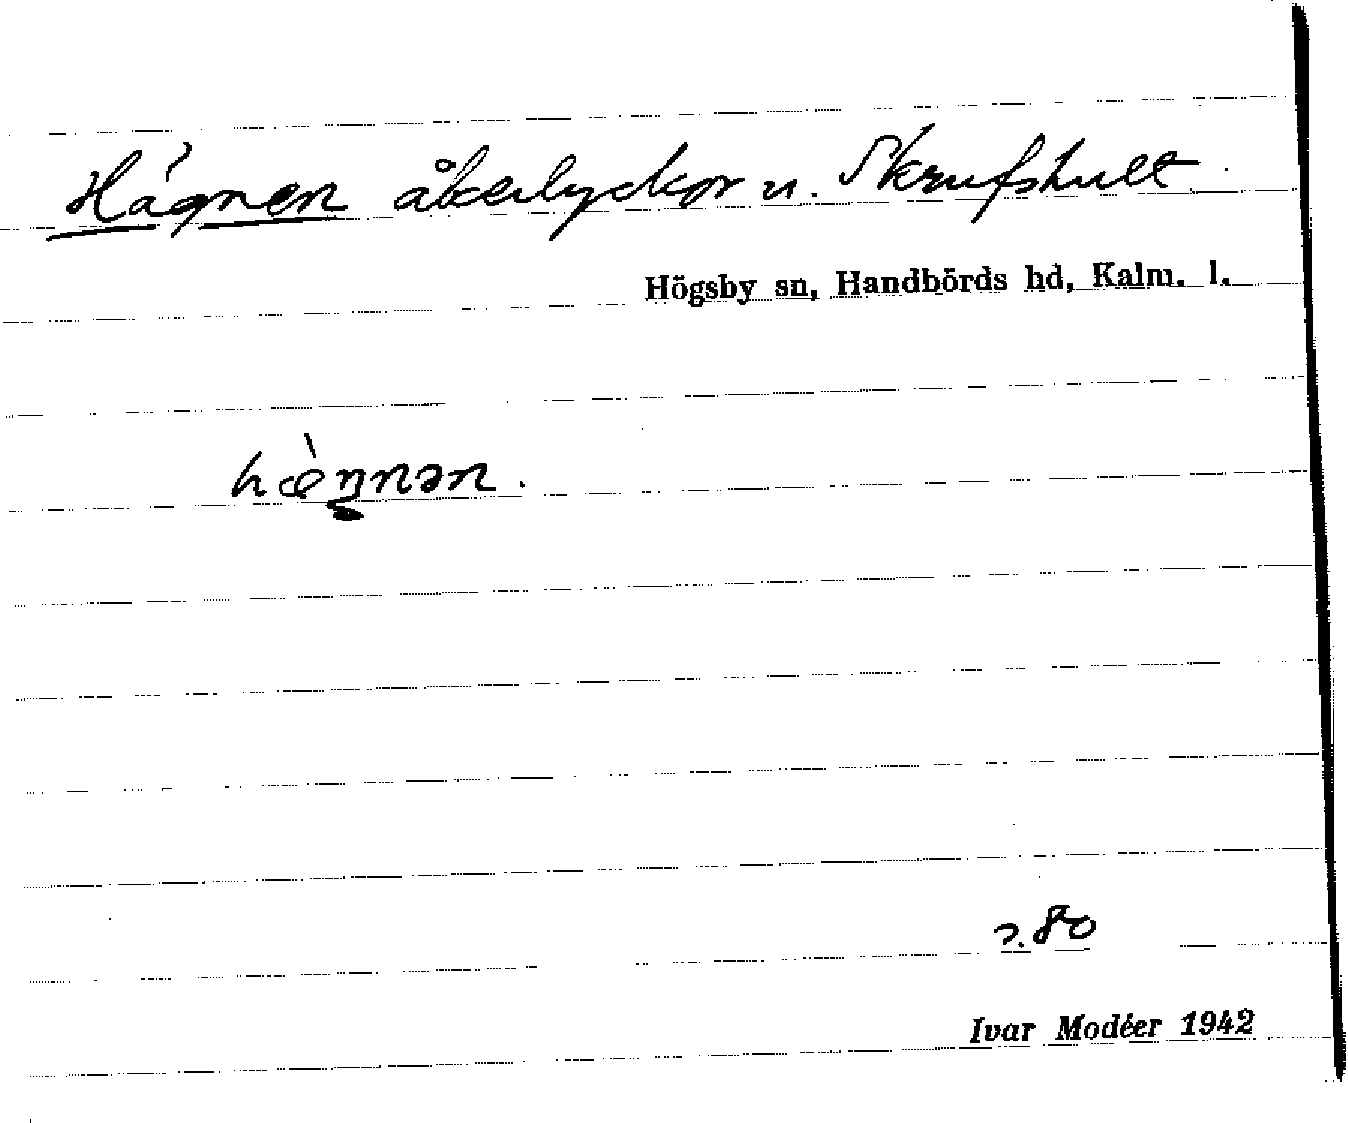 Hágnen åkerlyckor u. Skrufshult.
Högsby sn, Handbörds hd, Kalm. l.
hæ̀ŋnən.
s. 80
Ivar Modéer 1942